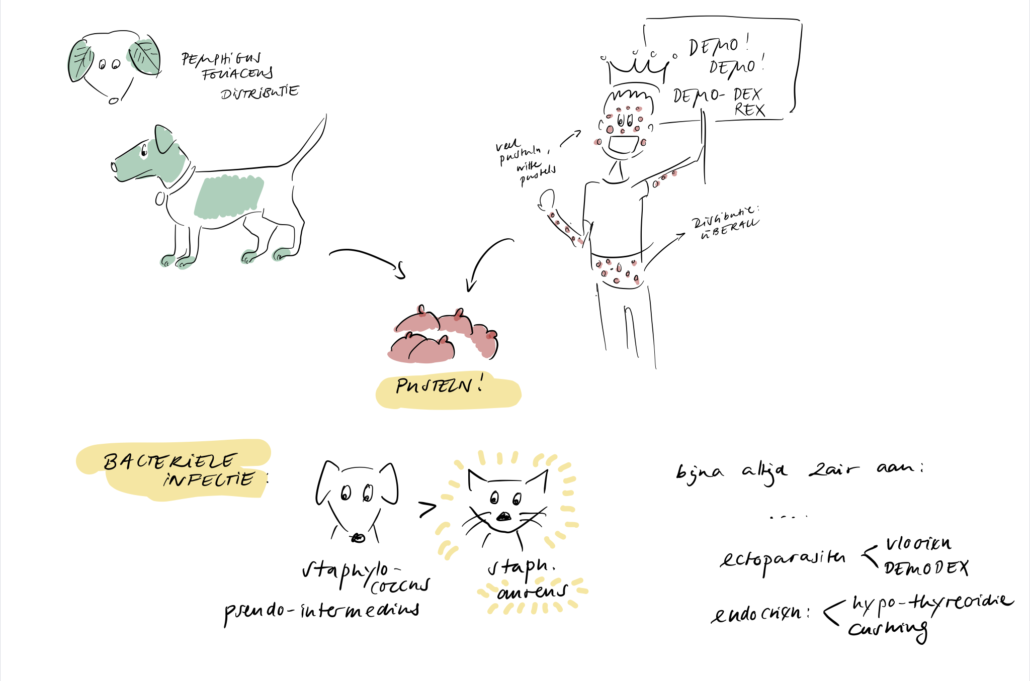 PEMPHIGUS
FOLIACEUS
DISTRIBUTIE
DEMO!
DEMO!
DEMO-DEX
REX
veel
pustuln,
witte
pustels
Distributie:
ÜBERALL
PUSTELN!
BACTERIELE
INFECTIE:
>
staphylo-
coccus
pseudo-intermedius
staph.
aureus
bijna altijd 2air aan:
....
ectoparasiten < vlooien
DEMODEX
endocrien: < hypo-thyreoidie
cushing